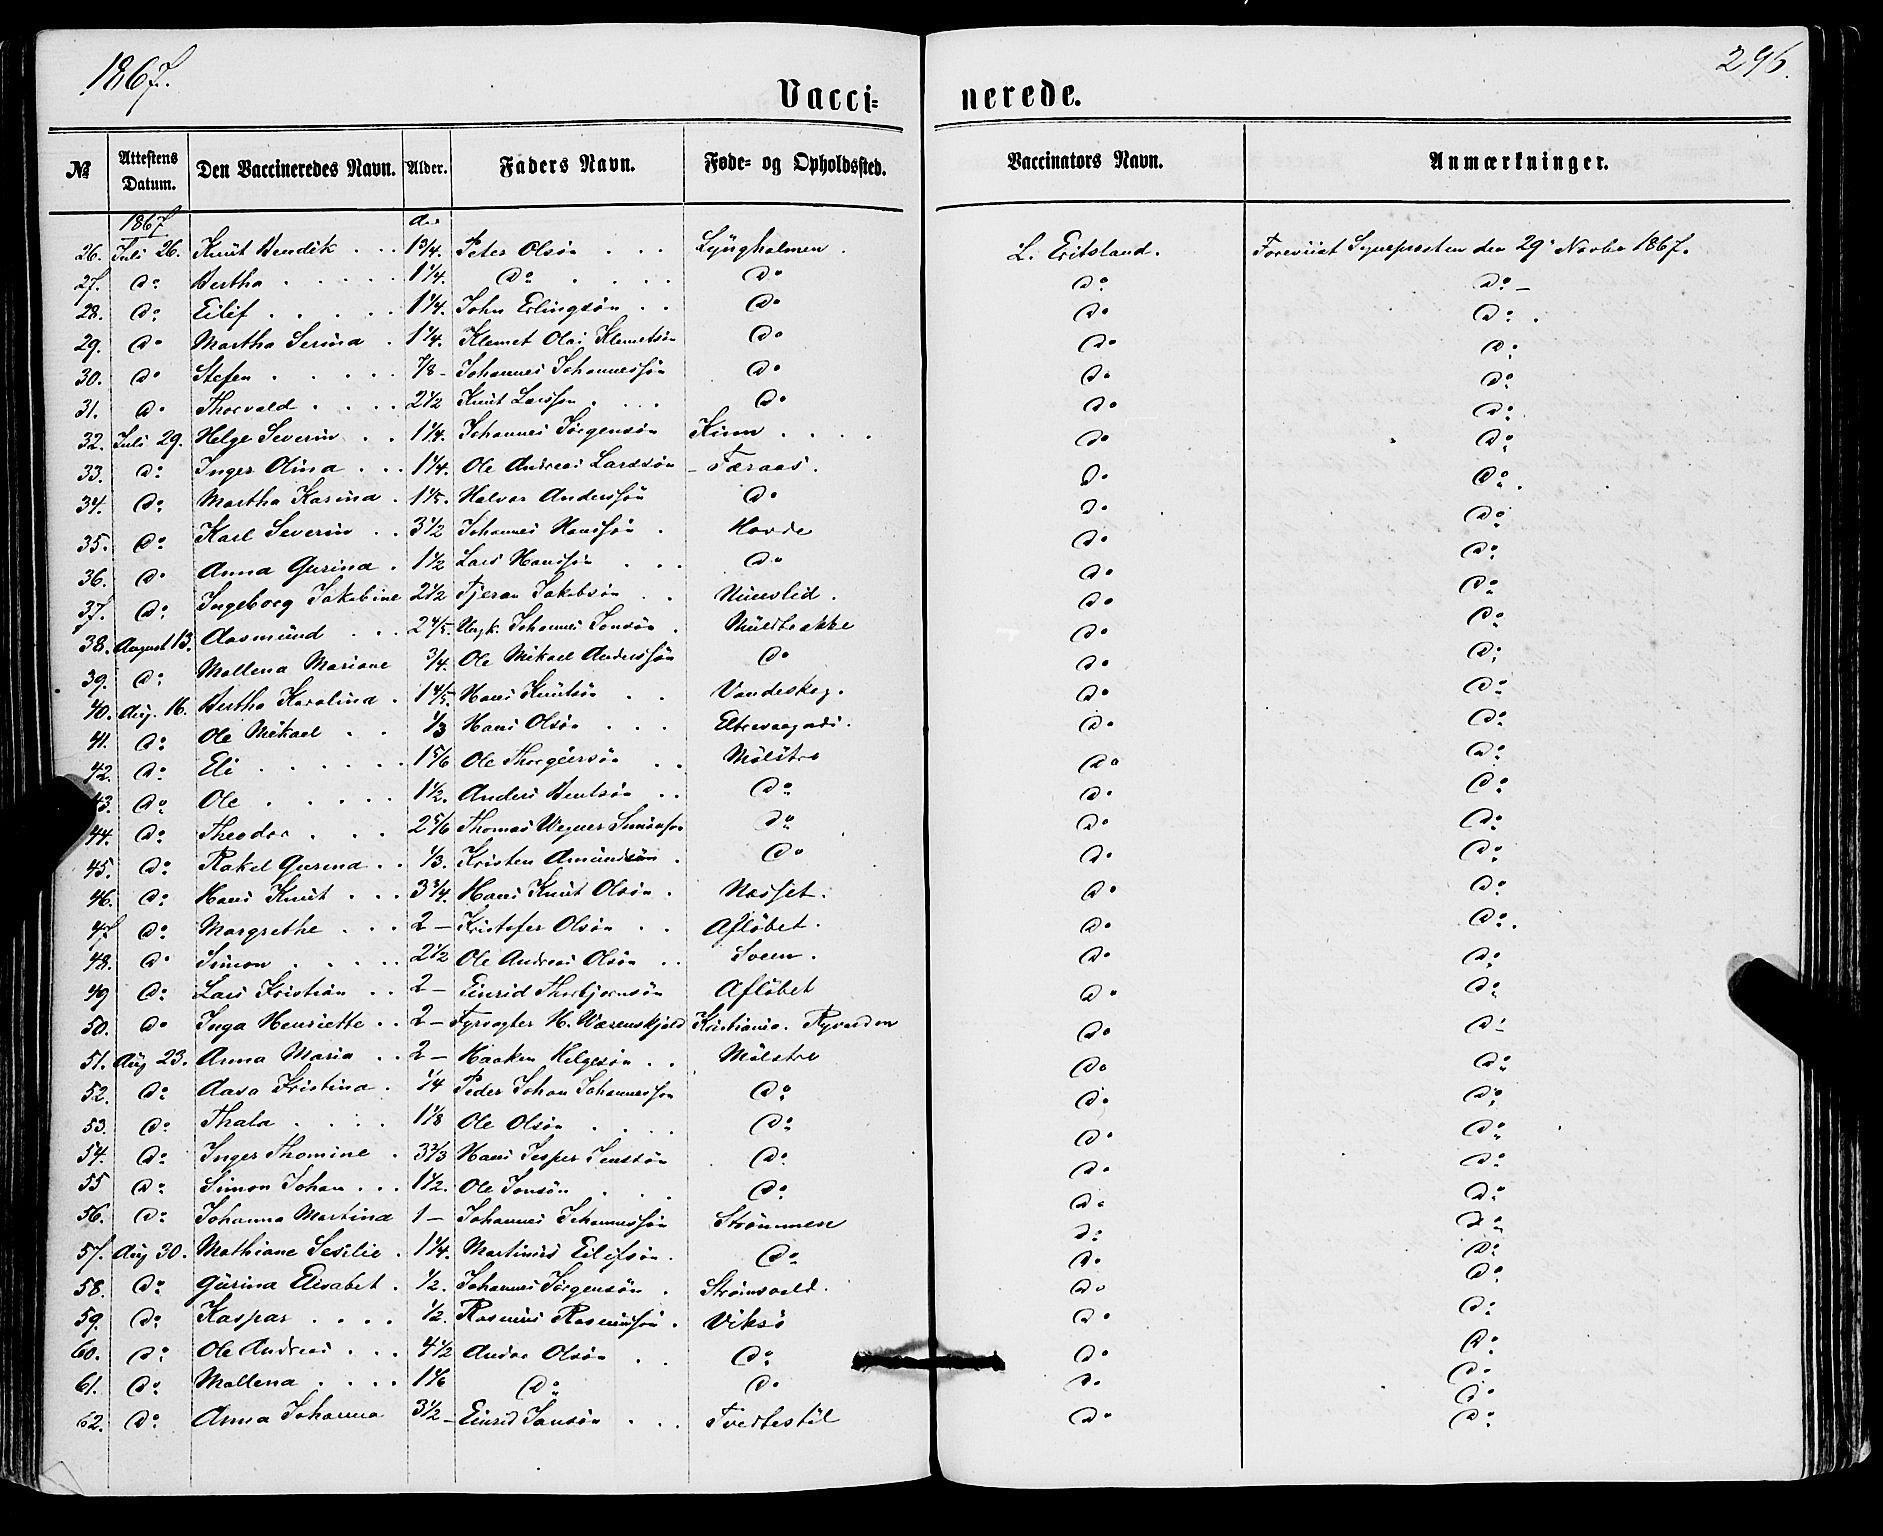 1867.
296.
Vacci= nerede.
№ Attestens Datum. Den Vaccineredes Navn. Alder. Faders Navn. Føde= og Opholdssted. Vaccinators Navn. Anmærkninger.
1867 Aar
26. Juli 26. Knut Bendik . . . 1 3/4. Peter Olsøn . . . Lyngholmen . L. Eritsland. Foreviist Synsposten den 29de Novbr 1867.
27. do Bertha . . . . . 1 1/4. do . . . . do do do –
28. do Eilif . . . . . 1 1/4. John Erlingsøn . . do do do .
29. do Martha Serina . 1 1/4. Klemet Olai Klemetsøn do do do
30. do Stefen . . . . . 7/8 – Johannes Johannessøn do do do
31. do Thorvald . . . . 2 1/2 Knut Larssøn . . . do do do
32. Juli 29. Helge Severin . . 1 1/4. Johannes Jørgensøn Kinn . . . . do do
33. do Inger Olina . . . 1 1/4. Ole Andreas Larssøn – Færaas . do do
34. do Martha Karina . 1 1/5. Halvor Anderssøn do do do
35. do Karl Severin . . 3 1/2 Johannes Hanssøn . Hovde do do
36. do Anna Gurina . 1 1/2 Lars Hanssøn . . . do do do
37. do Ingeborg Jakobine 2 1/2 Tjeran Jakobsøn . . do do
38. August 13. Aasmund . . . 2 4/5. Ungk. Johannes Jonsøn . do do
39. do Mallena Mariane 3/4. Ole Mikael Anderssøn do do do
40. Aug. 16. Bertha Karolina . 1 4/5. Hans Knutsøn . . Vandeskog. do do
41. do Ole Mikael . . 1/3 Hans Olsøn . . . Eltrevaagads. do do
42. do Eli . . . . . . 1 5/6 Ole Thorgiersøn . . Mølstre do do
43. do Ole . . . . . 1 1/2. Anders Bentsøn . . do do do
44. do Theodor . . . 2 5/6 Thomas Wegner Simonsøn do do do
45. do Rakel Gurina . . 1/3. Kristen Amundsøn . do do do
46. do Hans Knut . . . 3 3/4. Hans Knut Olsøn . Nesset. do do
47 do Margrethe . . . 2 – Kristofer Olsøn . . Afløbet . do do .
48. do Simon . . . . . 2 1/2 Ole Andreas Olsøn . . Sveen . do do
49 do Lars Kristian . . 2 – Einrid Thorbjørnsøn Afløbet do do
50. do Inga Henriette . . 2 – Fyrvogter H. Wærenskjold Kristiania. Ryvarden do do
51. Aug 23. Anna Maria . . 2 – Haaken Helgesøn . . Mølstre do do
52. do Aasa Kristina . 1/4 Peder Johan Johannessøn do do do
53. do Thala . . . . 1 1/8 Ole Olsøn . . . . do do do
54. do Inger Thomine . 3 2/3 Hans Jesper Jenssøn do do do
55 do Simon Johan . . . 1 1/2. Ole Jonsøn . . . do do do
56. do Johanna Martina 1 – Johannes Johannessøn Strømmen do do
57. Aug 30. Mathiane Sesilie . 1 1/4. Martinus Eilifsøn . do do do
58. do Gurina Elisabet . 1/2. Johannes Jørgensøn . Strømsvold. do do
59. do Kaspar . . . . 1/2. Rasmus Rasmussøn . Viksø do do
60. do Ole Andreas . . . 4 1/2 Andor Olsøn . . do do do
61. do Mallena . . . . 1 1/6 do do do do
62. do Anna Johanna 3 1/2 – Einrid Jansøn . . . Tveitestøl do do